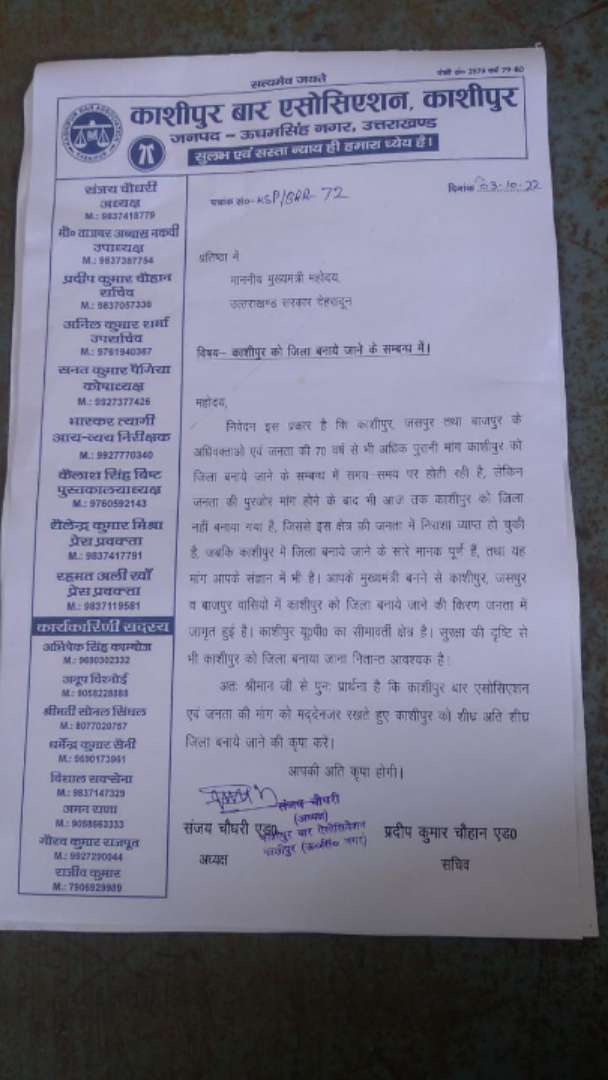 सत्यमेव जयते
पंजी सं० 2579 वर्ष 79-80
काशीपुर बार एसोसिएशन, काशीपुर
जनपद – ऊधमसिंह नगर, उत्तराखण्ड
सुलभ एवं सस्ता न्याय ही हमारा ध्येय है।
पत्रांक सं०- KSP/BAR-72
दिनांक 03-10-22
संजय चौधरी
अध्यक्ष
M.: 9837418779
मौ० ताजवर अब्बास नकवी
उपाध्यक्ष
M.: 9837387754
प्रदीप कुमार चौहान
सचिव
M.: 9837057330
अनिल कुमार शर्मा
उपसचिव
M.: 9761940367
सनत कुमार पैगिया
कोषाध्यक्ष
M.: 9927377426
भास्कर त्यागी
आय-व्यय निरीक्षक
M.: 9927770340
कैलाश सिंह बिष्ट
पुस्तकालयाध्यक्ष
M.: 9760592143
शैलेन्द्र कुमार मिश्रा
प्रेस प्रवक्ता
M.: 9837417791
रहमत अली खाँ
प्रेस प्रवक्ता
M.: 9837119581
कार्यकारिणी सदस्य
अभिषेक सिंह काम्बोज
M.: 9690302332
अनूप विश्नोई
M.: 9058228888
श्रीमती सोनल सिंघल
M.: 8077020757
धर्मेन्द्र कुमार सैनी
M.: 9690173961
विशाल सक्सैना
M.: 9837147329
अमन राणा
M.: 9058663333
गौरव कुमार राजपूत
M.: 9927290044
राजीव कुमार
M.: 7906929989
प्रतिष्ठा में
माननीय मुख्यमंत्री महोदय,
उत्तराखण्ड सरकार देहरादून
विषय– काशीपुर को जिला बनाये जाने के सम्बन्ध में।
महोदय,
निवेदन इस प्रकार है कि काशीपुर, जसपुर तथा बाजपुर के
अधिवक्ताओ एवं जनता की 70 वर्ष से भी अधिक पुरानी मांग काशीपुर को
जिला बनाये जाने के सम्बन्ध में समय–समय पर होती रही है, लेकिन
जनता की पुरजोर मांग होने के बाद भी आज तक काशीपुर को जिला
नहीं बनाया गया है, जिससे इस क्षेत्र की जनता में निराशा व्याप्त हो चुकी
है, जबकि काशीपुर में जिला बनाये जाने के सारे मानक पूर्ण हैं, तथा यह
मांग आपके संज्ञान में भी है। आपके मुख्यमंत्री बनने से काशीपुर, जसपुर
व बाजपुर वासियो में काशीपुर को जिला बनाये जाने की किरण जनता में
जागृत हुई है। काशीपुर यू०पी० का सीमावर्ती क्षेत्र है। सुरक्षा की दृष्टि से
भी काशीपुर को जिला बनाया जाना नितान्त आवश्यक है।
अतः श्रीमान जी से पुनः प्रार्थना है कि काशीपुर बार एसोसिएशन
एवं जनता की मांग को मद्देनजर रखते हुए काशीपुर को शीघ्र अति शीघ्र
जिला बनाये जाने की कृपा करें।
आपकी अति कृपा होगी।
संजय चौधरी
(अध्यक्ष)
काशीपुर बार ऐसोसिएशन
काशीपुर (ऊ०सिं० नगर)
संजय चौधरी एड०
अध्यक्ष
प्रदीप कुमार चौहान एड०
सचिव